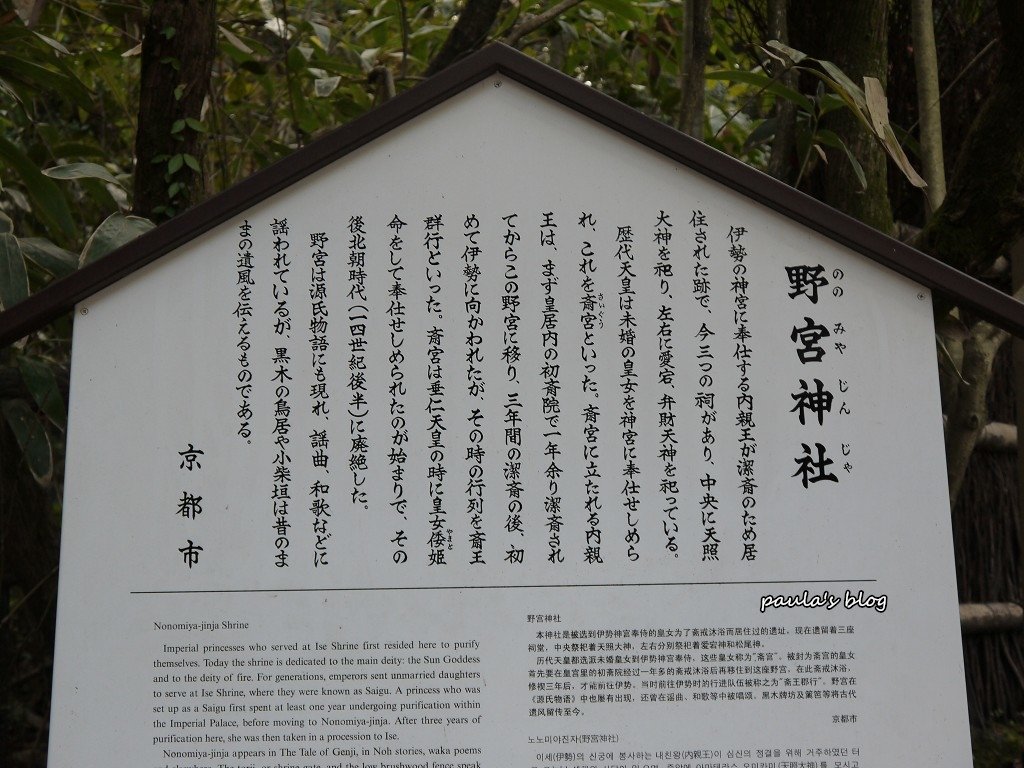 野宮神社
ののみやじんじゃ
伊勢の神宮に奉仕する内親王が潔斎のため居
住された跡で、今三つの祠があり、中央に天照
大神を祀り、左右に愛宕、弁財天神を祀っている。
歴代天皇は未婚の皇女を神宮に奉仕せしめら
れ、これを斎宮といった。斎宮に立たれる内親
さいぐう
王は、まず皇居内の初斎院で一年余り潔斎され
てからこの野宮に移り、三年間の潔斎の後、初
めて伊勢に向かわれたが、その時の行列を斎王
群行といった。斎宮は垂仁天皇の時に皇女倭姫
やまと
命をして奉仕せしめられたのが始まりで、その
後北朝時代(一四世紀後半)に廃絶した。
野宮は源氏物語にも現れ、謡曲、和歌などに
謡われているが、黒木の鳥居や小柴垣は昔のま
まの遺風を伝えるものである。
京都市
paula's blog
Nonomiya-jinja Shrine
Imperial princesses who served at Ise Shrine first resided here to purify
themselves. Today the shrine is dedicated to the main deity: the Sun Goddess
and to the deity of fire. For generations, emperors sent unmarried daughters
to serve at Ise Shrine, where they were known as Saigu. A princess who was
set up as a Saigu first spent at least one year undergoing purification within
the Imperial Palace, before moving to Nonomiya-jinja. After three years of
purification here, she was then taken in a procession to Ise.
Nonomiya-jinja appears in The Tale of Genji, in Noh stories, waka poems
野宫神社
本神社是被选到伊势神宫奉侍的皇女为了斋戒沐浴而居住过的遗址，现在遗留着三座
祠堂，中央祭祀着天照大神，左右分别祭祀着爱宕神和松尾神。
历代天皇都选派未婚皇女到伊势神宫奉侍，这些皇女称为"斋宫"，被封为斋宫的皇女
首先要在皇宫里的初斋院经过一年多的斋戒沐浴后再移住到这座野宫，在此斋戒沐浴，
修禊三年后，才能前往伊势，当时前往伊势时的行进队伍被称之为"斋王群行"。野宫在
《源氏物语》中也屡有出现，还曾在谣曲、和歌等中被唱颂，黑木牌坊及篱笆等将古代
遗风留传至今。
京都市
노노미야진자(野宮神社)
이세(伊勢)의 신궁에 봉사하는 내친왕(内親王)이 심신의 정결을 위해 거주하였던 터